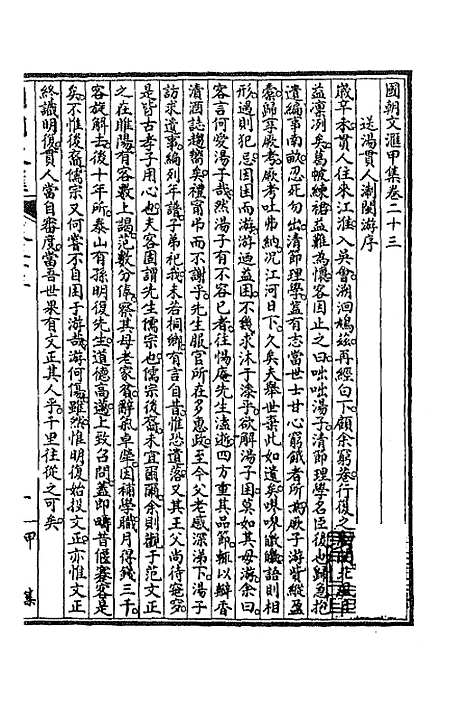 國朝文匯甲集卷二十三
送湯貫人淛閩游序
歲辛未貫人往來江淮入吳會溯洄鳩茲再經白下顧余窮巷行復之
益凜冽矣葛帔練裙益難為懷客固止之曰咄咄湯子清節理學名臣後也歸急抱
遺編事南畝忍死勿出清節理學蓋有志當世士甘心窮餓者所為厥子游貲縱盈
橐歸厥考厥考吐弗納沉江河日下久矣夫舉世棄此如遺矣喋喋讖讖語則相
形矣遇則犯忌困而游游迺益困不幾求沐于漆乎欲解湯子困莫如其毋游余曰
客言何愛湯子甚然湯子有不容已者往惕庵先生遠逝四方重其品節輒以辦香
清酒誌趨嚮矣禮當弔而不謝乎先生服官所在多惠政至今父老感深涕下湯子
訪求遺事編列年譜子弟祀我未若桐鄉有言自昔惟恐遺落又其王父尚待窀穸
是皆古孝子用心也夫客固謂先生儒宗也儒宗後裔未宜爾爾余則觀于范文正
之在睢陽有客數上謁范數分俸察其母老家貧辭氣卓犖因補學職月得錢三千
客旋解去後十年所泰山有孫明復先生道德高邁上致召問蓋即疇昔偃蹇客是
矣不惟後裔儒宗又何嘗不自困于游哉游何傷雖然惟明復始投文正亦惟文正
終識明復貫人當自審度當吾世果有文正其人乎千里往從之可矣
一
甲
集